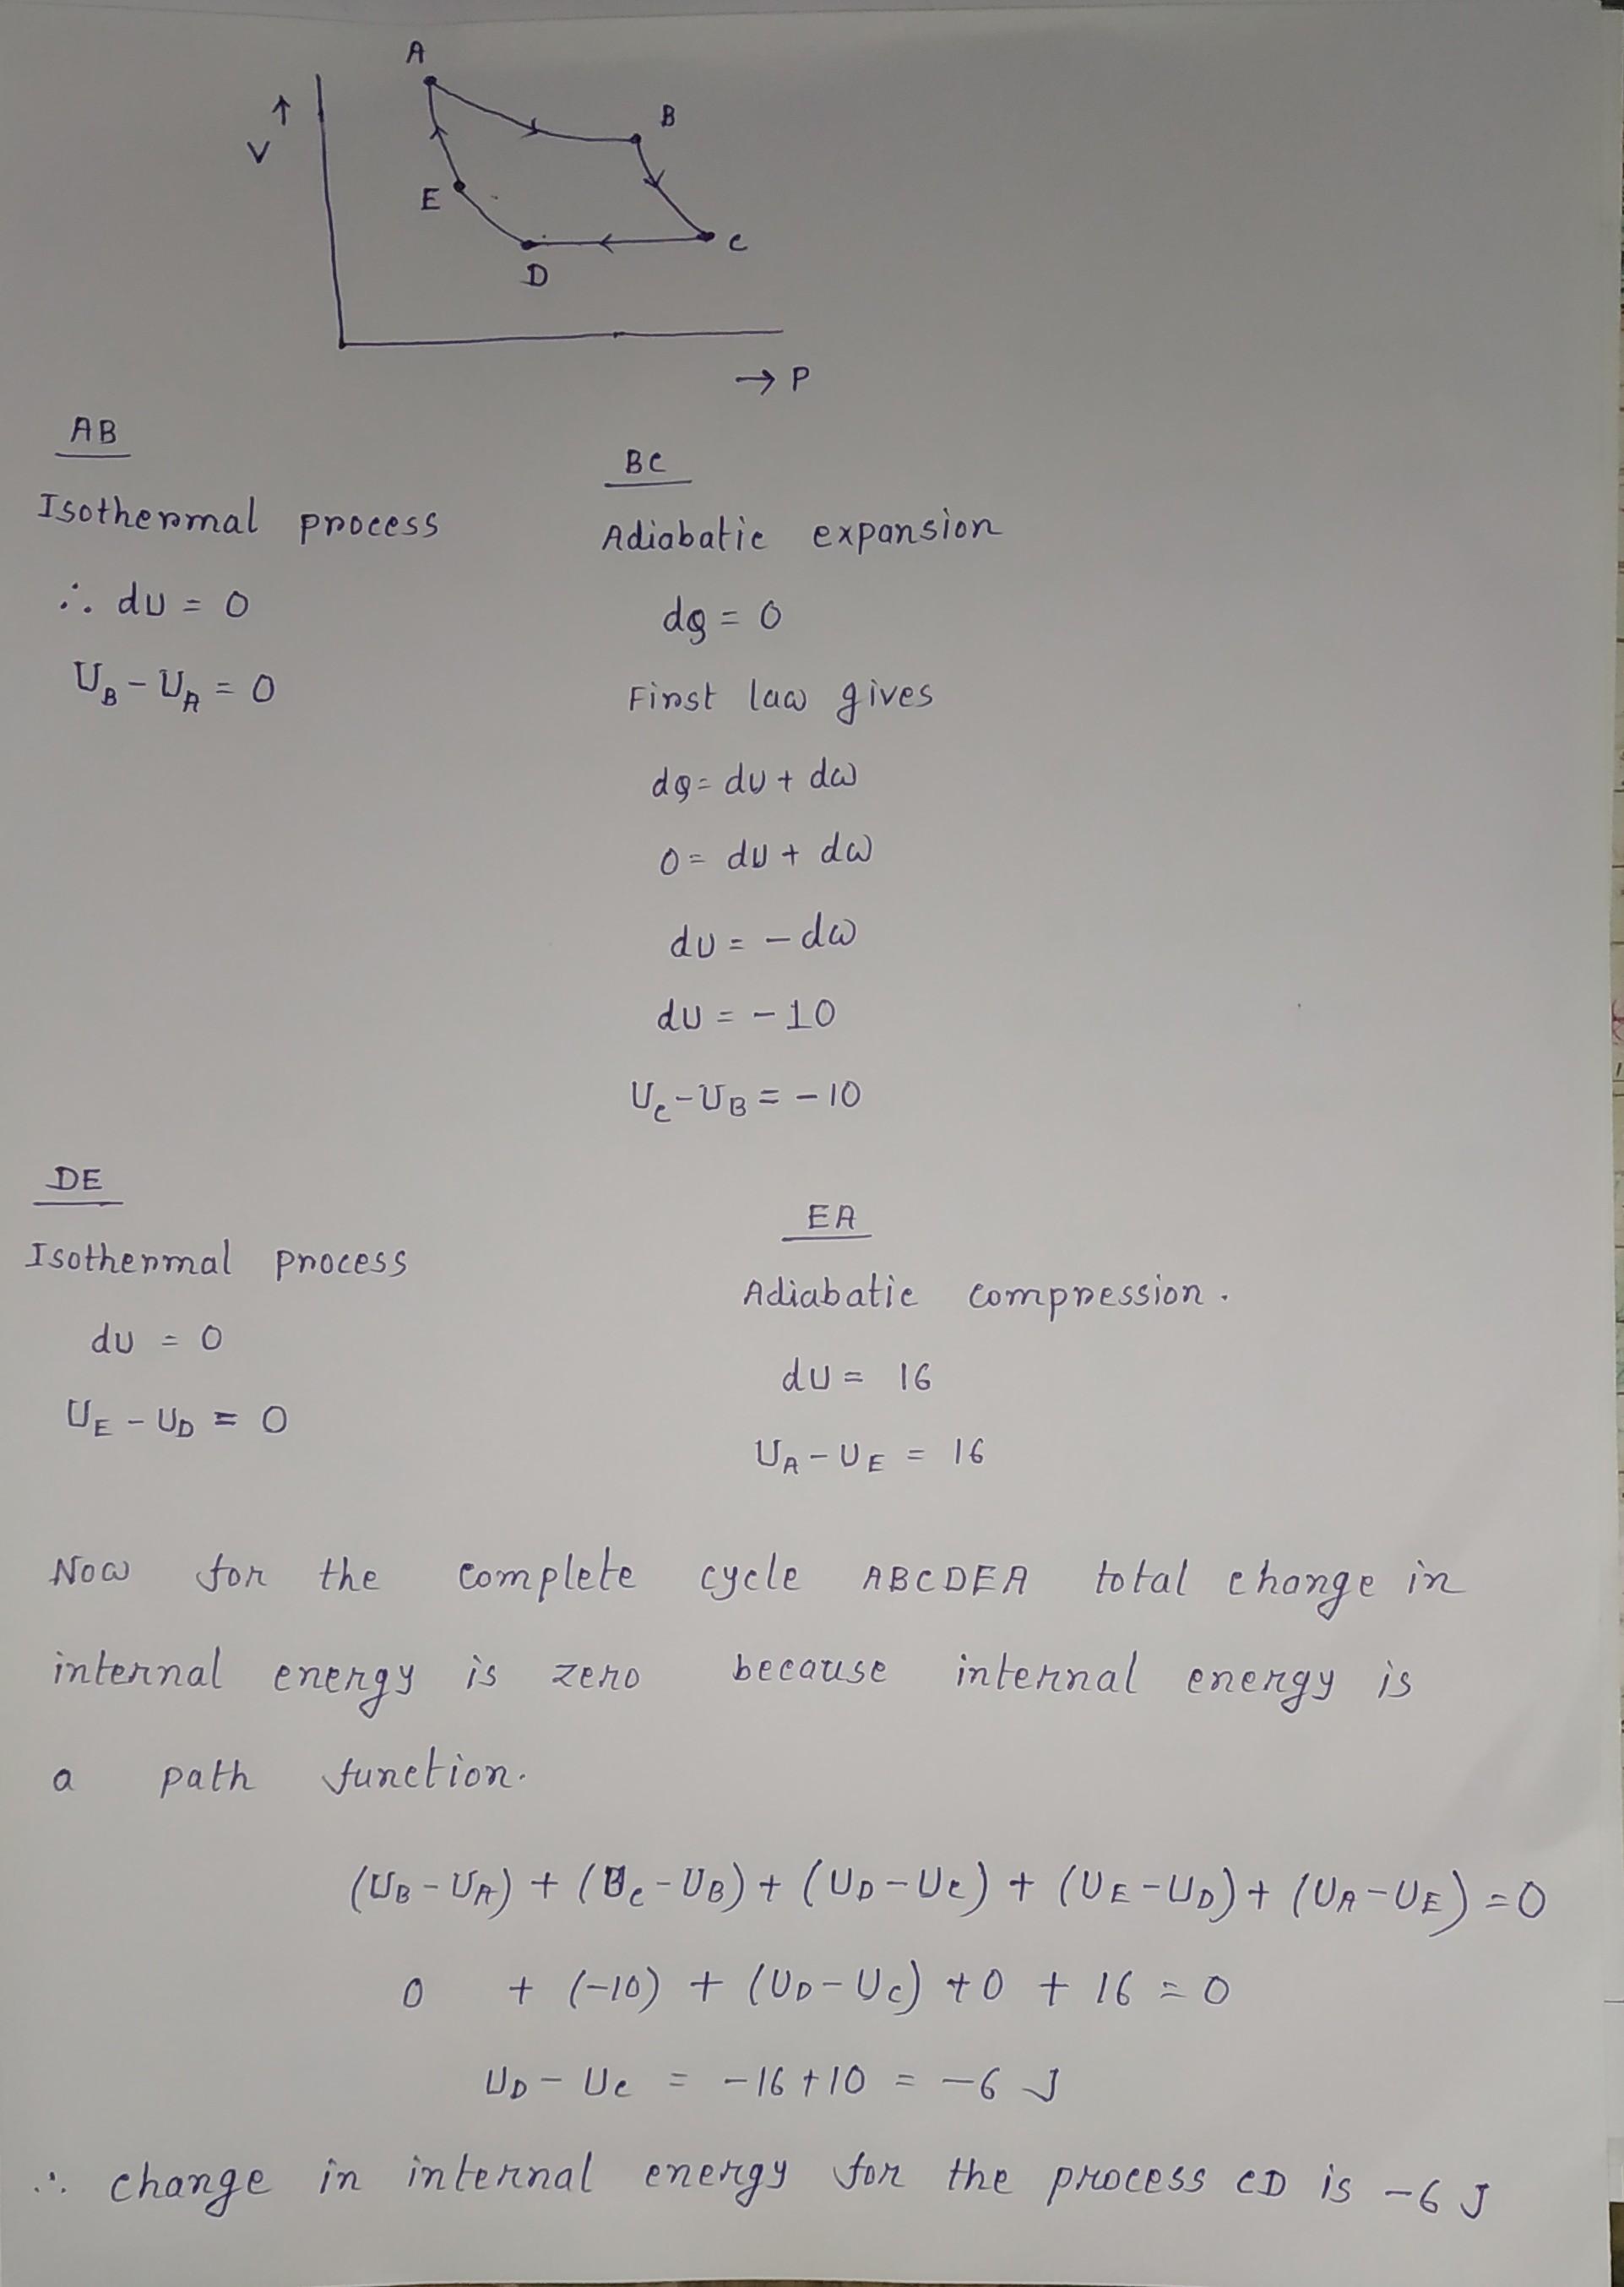 A
B
↑
V
E
C
D
→ P
AB
Isothermal process
∴ dU = 0
U_B - U_A = 0
BC
Adiabatic expansion
dQ = 0
First law gives
dQ = dU + dW
0 = dU + dW
dU = - dW
dU = - 10
U_C - U_B = - 10
DE
Isothermal process
dU = 0
U_E - U_D = 0
EA
Adiabatic compression.
dU = 16
U_A - U_E = 16
Now for the complete cycle ABCDEA total change in
internal energy is zero because internal energy is
a path function.
(U_B - U_A) + (U_C - U_B) + (U_D - U_C) + (U_E - U_D) + (U_A - U_E) = 0
0 + (-10) + (U_D - U_C) + 0 + 16 = 0
U_D - U_C = -16 + 10 = -6 J
∴ change in internal energy for the process CD is -6 J